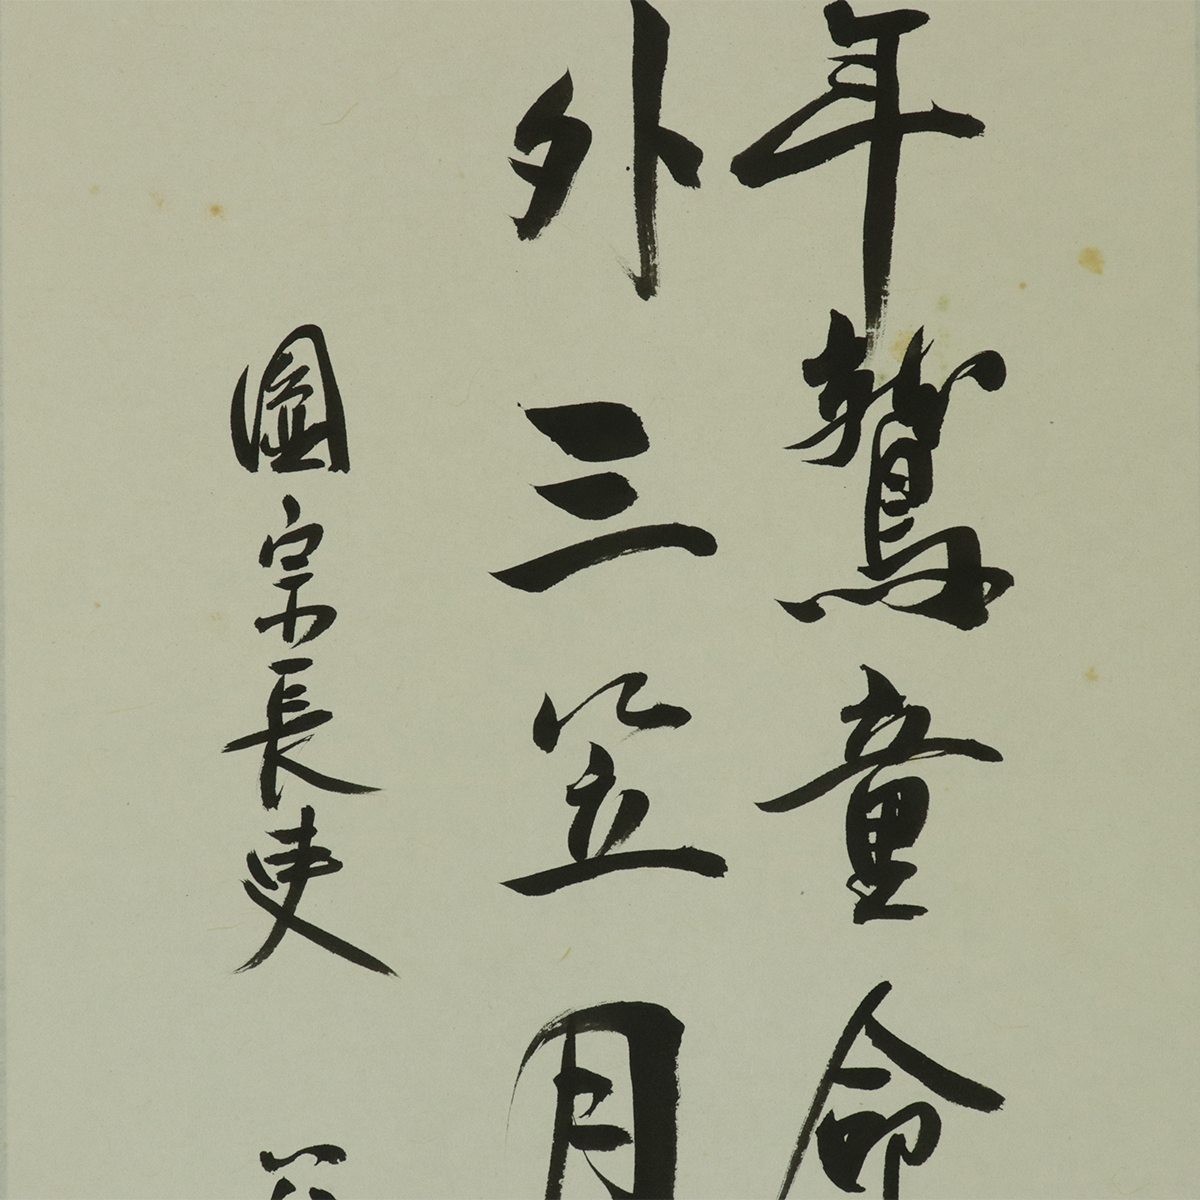 年鷲童命
外三笠月
圓宗長吏